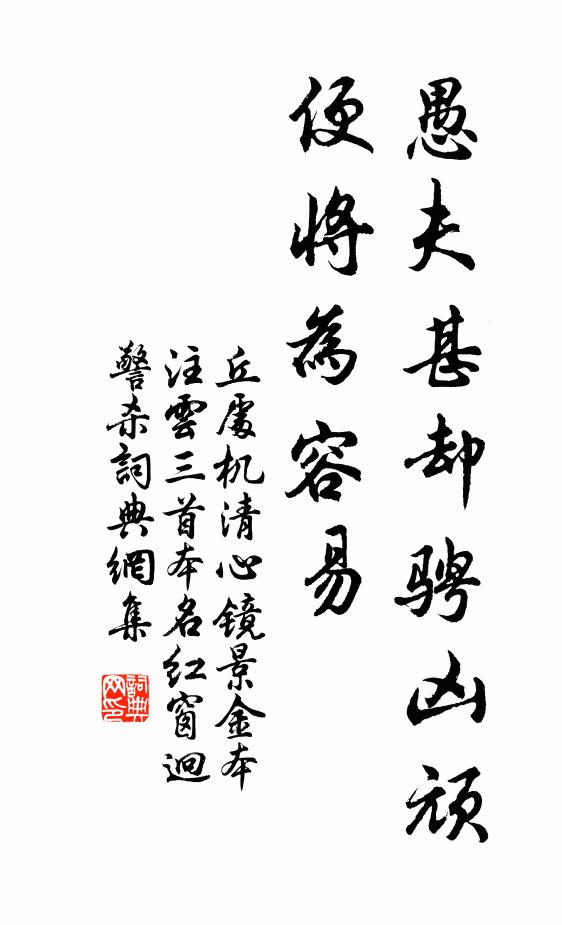 愚夫甚却骋凶顽
便将為容易
丘處机清心镜景金本
注雲三首本名红窗迥
警杀詞典網集
詞典网印